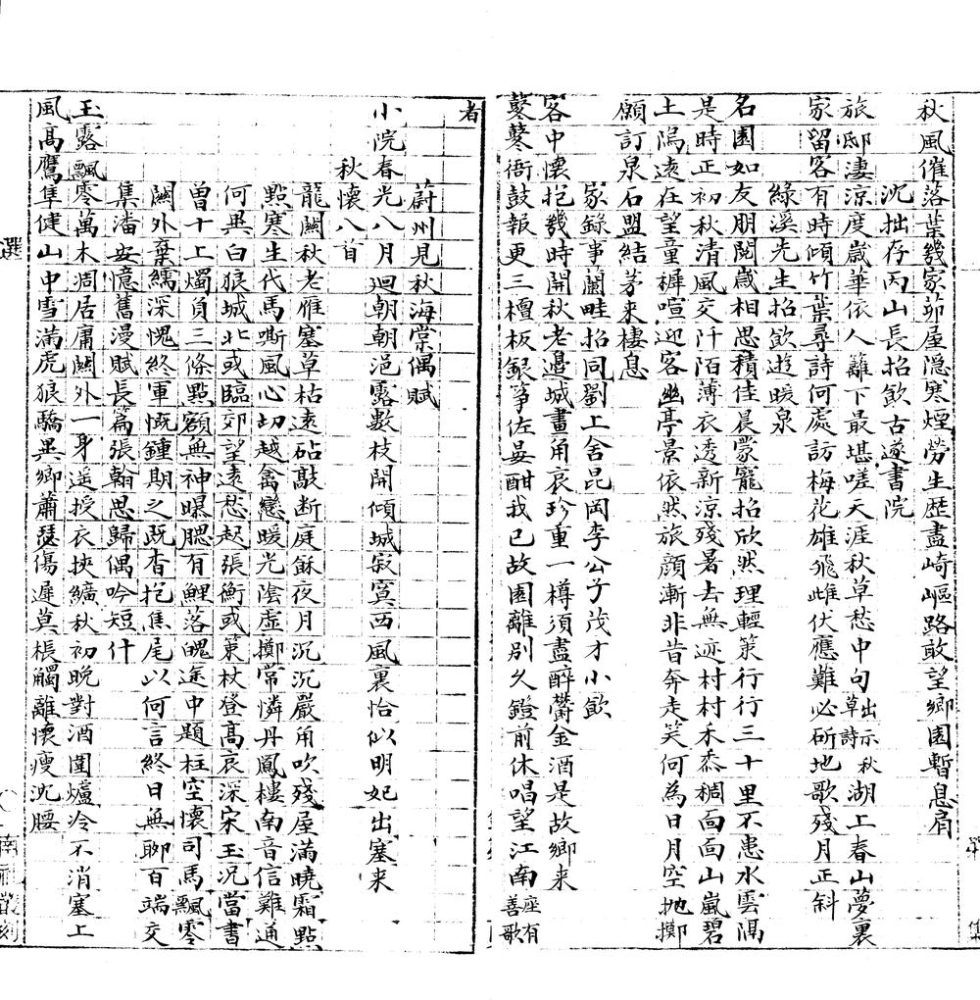 秋風催落葉幾家茆屋隱寒煙勞生歷盡崎嶇路敢望鄉園暫息肩
沈拙存丙山長招飲古邃書院
旅邸淒涼度歲華依人籬下最堪嗟天涯秋草愁中句出示秋草詩湖上春山夢裏
家留客有時傾竹葉尋詩何處訪梅花雄飛雌伏應難必斫地歌殘月正斜
綠溪先生招飲遊暖泉
名園如友朋閱歲相思積佳晨蒙寵招欣然理輕策行行三十里不患水雲隔
是時正初秋清風交阡陌薄衣透新涼殘暑去無迹村村禾黍稠面面山嵐碧
土隖遠在望童穉喧迎客幽亭景依然旅顏漸非昔奔走笑何為日月空拋擲
願訂泉石盟結茅來棲息
家錄事蘭畦招同劉上舍昆岡李公子茂才小飲
客中懷抱幾時開秋老邊城畫角哀珍重一樽須盡醉鬱金酒是故鄉來
鼕鼕衙鼓報更三檀板銀箏佐晏酣我已故園離別久鐙前休唱望江南座有善歌
者
蔚州見秋海棠偶賦
小院春光八月迴朝朝浥露數枝開傾城寂寞西風裏恰似明妃出塞來
秋懷八首
龍闕秋老雁塞草枯遠砧敲斷庭穌夜月沉沉嚴角吹殘屋滿曉霜點
點寒生代馬嘶風心切越禽戀暖光陰虛擲常憐丹鳳樓南音信難通
何異白狼城北或臨郊望遠愁起張衡或策杖登高哀深宋玉況當書
曾十上燭負三條點額無神曝腮有鯉落魄途中題柱空懷司馬飄零
關外棄繻深愧終軍慨鍾期之既杳抱焦尾以何言終日無聊百端交
集潘安憶舊漫賦長篇張翰思歸偶吟短什
玉露飄零萬木凋居庸關外一身遙授衣挾纊秋初晚對酒圍爐冷不消塞上
風高鷹隼健山中雪滿虎狼驕異鄉蕭瑟傷遲莫棖觸離懷瘦沈腰
選